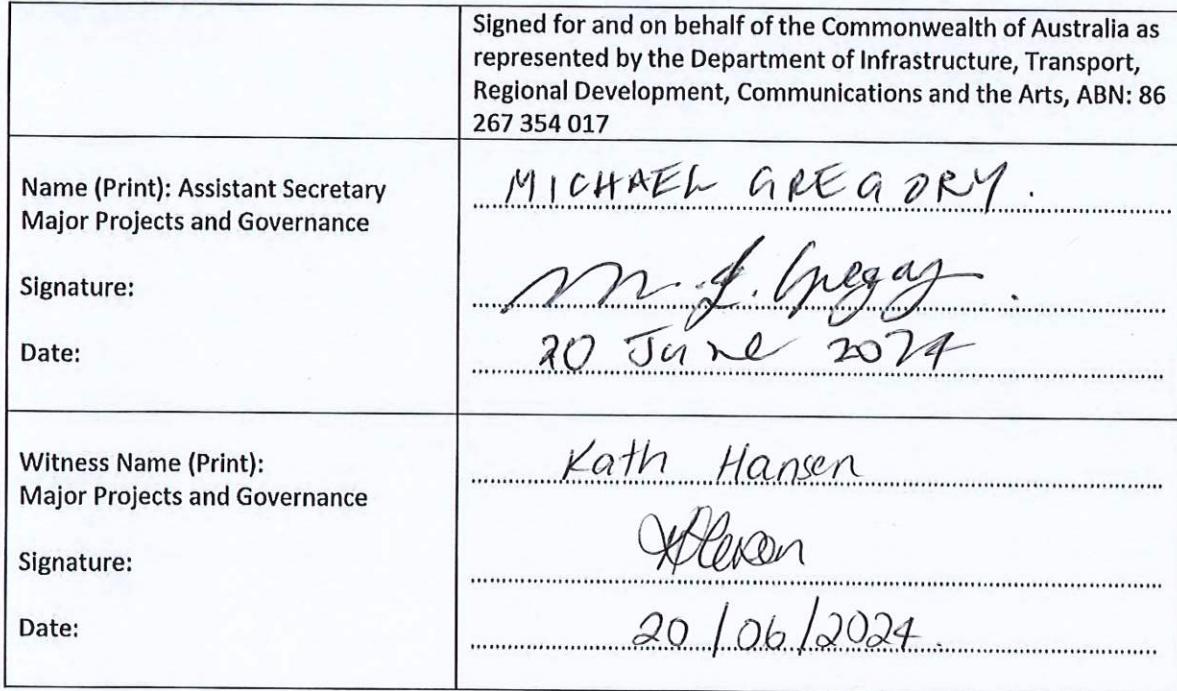 Signed for and on behalf of the Commonwealth of Australia as
represented by the Department of Infrastructure, Transport,
Regional Development, Communications and the Arts, ABN: 86
267 354 017
Name (Print): Assistant Secretary
Major Projects and Governance
MICHAEL GREGORY.
Signature:
M. J. Gregory.
Date:
20 June 2024
Witness Name (Print):
Major Projects and Governance
Kath Hansen
Signature:
Date:
20/06/2024.